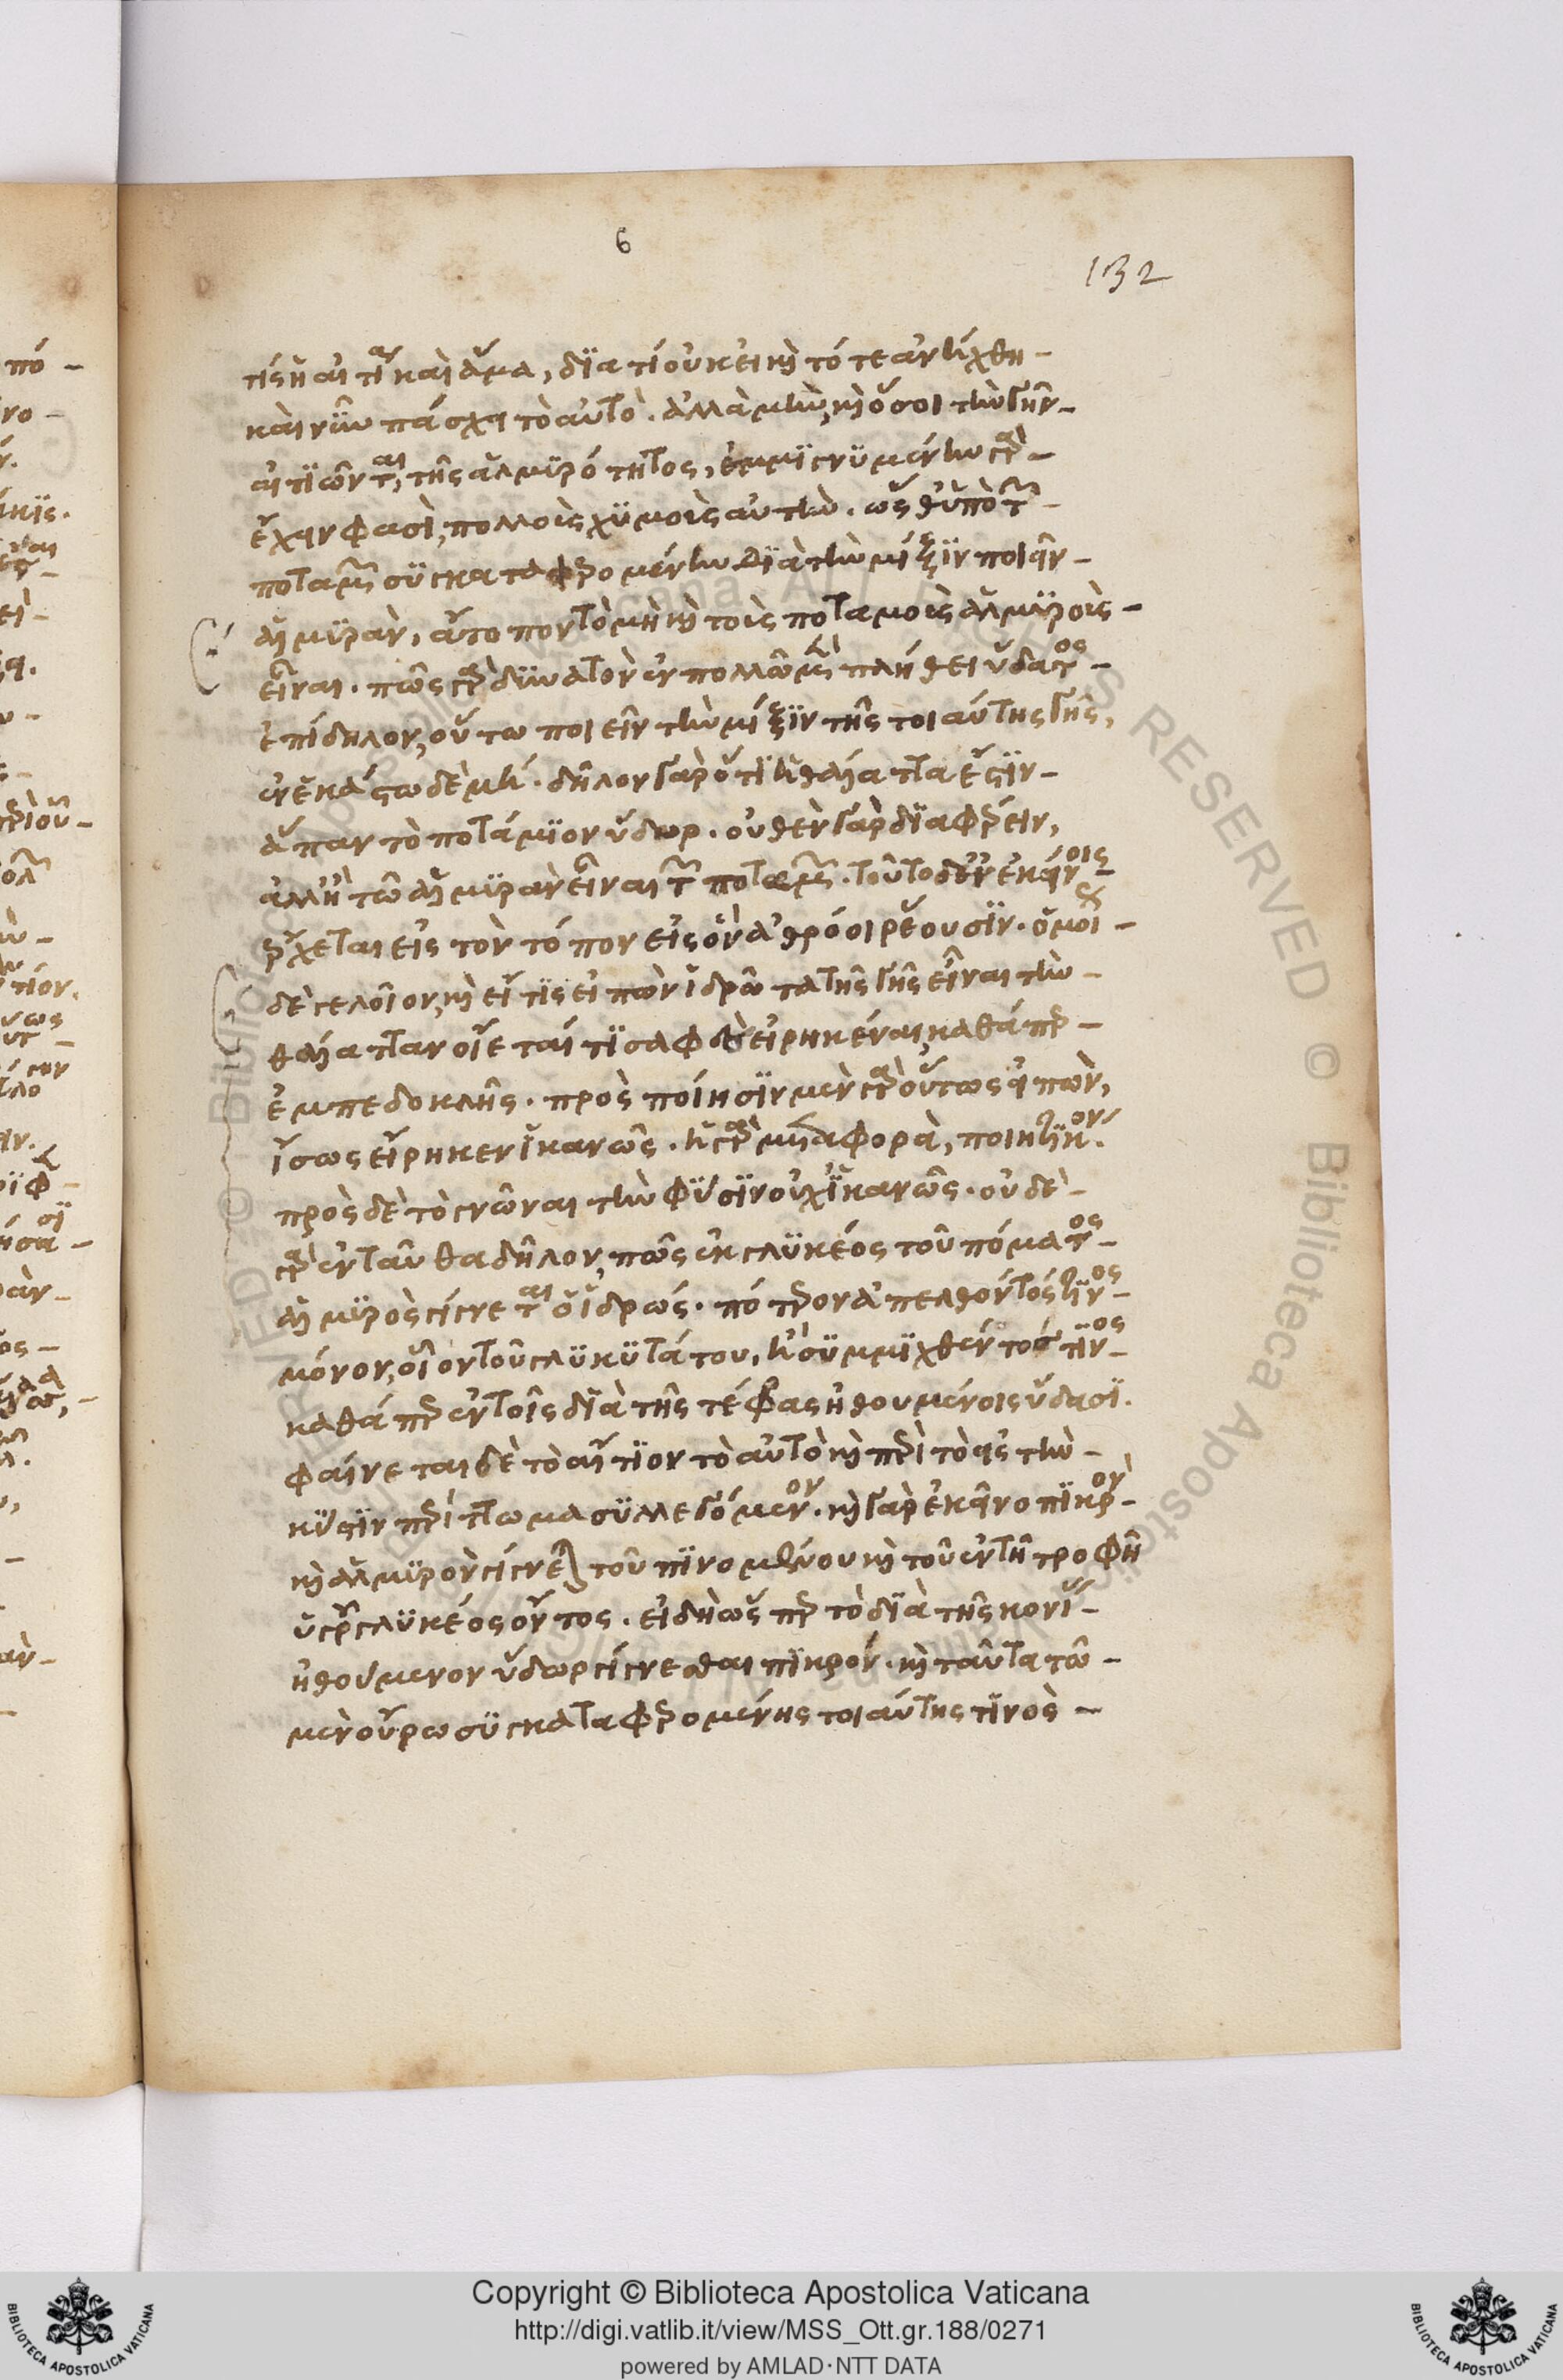 6
132
τίς ἡ αἰτία καὶ ἅμα, διὰ τί οὐκ εἰ καὶ τότε ἀνήχθη
καὶ νῦν πάσχει τὸ αὐτό. ἀλλὰ μὴν, καὶ ὅσοι τὴν γῆν
αἰτιῶνται, τῆς ἁλμυρότητος, ἐμμιγνυμένην γὰρ
ἔχειν φασὶ, πολλοὺς χυμοὺς αὐτήν. ὥσθ' ὑπὸ τῶν
ποταμῶν συγκαταφερομένην διὰ τὴν μίξιν ποιεῖν
ἁλμυρὰν, ἄτοπον τὸ μὴ καὶ τοὺς ποταμοὺς ἁλμυροὺς
εἶναι. πῶς γὰρ δυνατὸν ἐν πολλῷ μὲν πλήθει ὕδατος
ἐπίδηλον, οὕτω ποιεῖν τὴν μίξιν τῆς τοιαύτης γῆς,
ἐν ἑκάστῳ δὲ μή. δῆλον γὰρ ὅτι ἡ θάλαττα ἐστὶν
ἅπαν τὸ ποτάμιον ὕδωρ. οὐθὲν γὰρ διαφέρειν,
ἀλλ' ἢ τῷ ἁλμυρὰν εἶναι τῶν ποταμῶν. τοῦτο δ' ἐν ἐκείνοις
ἔρχεται εἰς τὸν τόπον εἰς ὃν ἀθρόοι ῥέουσιν. ὁμοίως
δὲ γελοῖον, καὶ εἴ τις εἰπὼν ἱδρῶτα τῆς γῆς εἶναι τὴν
θάλατταν οἴεταί τι σαφὲς εἰρηκέναι, καθάπερ
ἐμπεδοκλῆς. πρὸς ποίησιν μὲν γὰρ οὕτως εἰπὼν,
ἴσως εἴρηκεν ἱκανῶς. ἡ γὰρ μεταφορὰ, ποιητικόν.
πρὸς δὲ τὸ γνῶναι τὴν φύσιν οὐχ' ἱκανῶς. οὐδὲ
γὰρ ἐνταῦθα δῆλον, πῶς ἐκ γλυκέος τοῦ πόματος
ἁλμυρὸς γίγνεται ὁ ἱδρώς. πότερον ἀπελθόντός τινος
μόνον, οἷον τοῦ γλυκυτάτου, ἢ συμμιχθέντος τινος
καθάπερ ἐν τοῖς διὰ τῆς τέφρας ἠθουμένοις ὕδασι.
φαίνεται δὲ τὸ αἴτιον τὸ αὐτὸ καὶ περὶ τὸ εἰς τὴν
κύστιν περίττωμα συλλεγόμενον. καὶ γὰρ ἐκεῖνο πικρὸν
καὶ ἁλμυρὸν γίγνεται τοῦ πινομένου καὶ τοῦ ἐν τῇ τροφῇ
ὑγροῦ γλυκέος ὄντος. εἰ δὴ ὥσπερ τὸ διὰ τῆς κονίας
ἠθούμενον ὕδωρ γίγνεσθαι πικρόν. καὶ ταῦτα τῷ
μὲν οὔρῳ συγκαταφερομένης τοιαύτης τινὸς
Copyright © Biblioteca Apostolica Vaticana
http://digi.vatlib.it/view/MSS_Ott.gr.188/0271
powered by AMLAD·NTT DATA